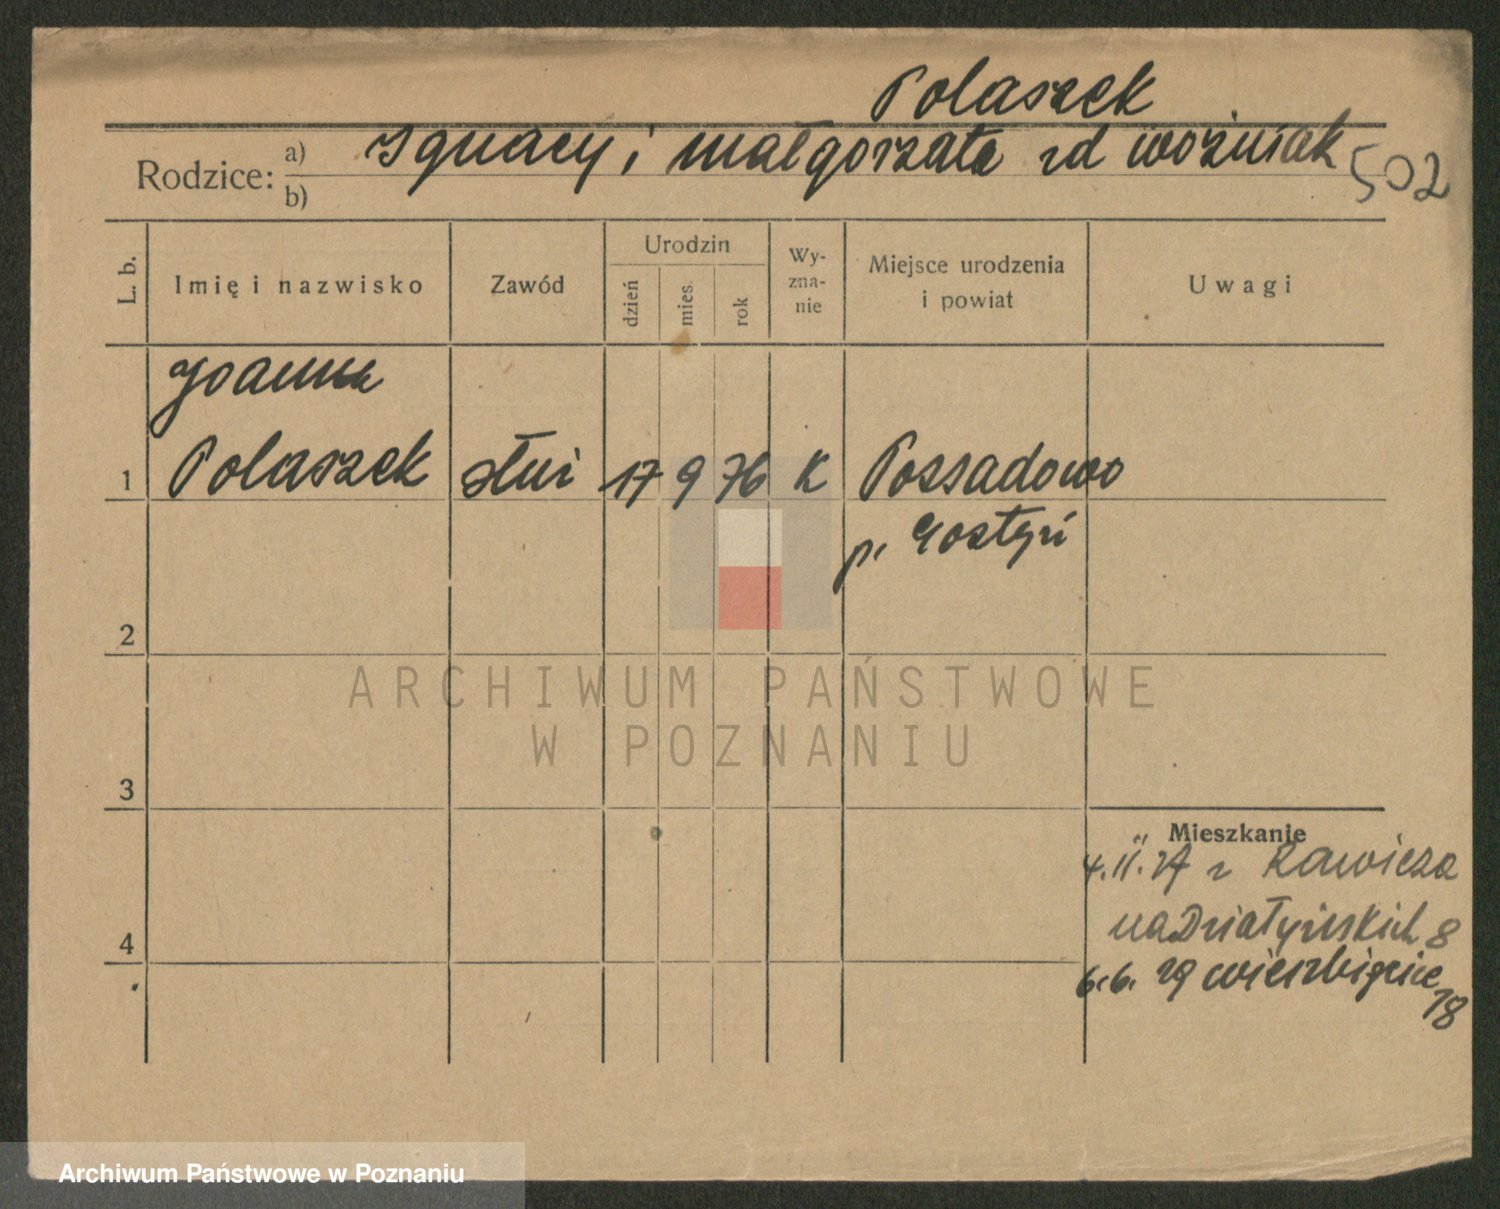 Polaszek
Ignacy i Małgorzata zd Woźniak 502
Rodzice: a)
b)
L. b.
Imię i nazwisko
Zawód
Urodzin
dzień
mies.
rok
Wy-
zna-
nie
Miejsce urodzenia
i powiat
Uwagi
Joanna
1 Polaszek służ 17 9 76 K Possadowo
p. Gostyń
2
ARCHIWUM PAŃSTWOWE
W POZNANIU
3
Mieszkanie
4. II. 27 z Rawicza
na Działyńskich 8
4
6.6. 29 Wierzbięcice
18
Archiwum Państwowe w Poznaniu